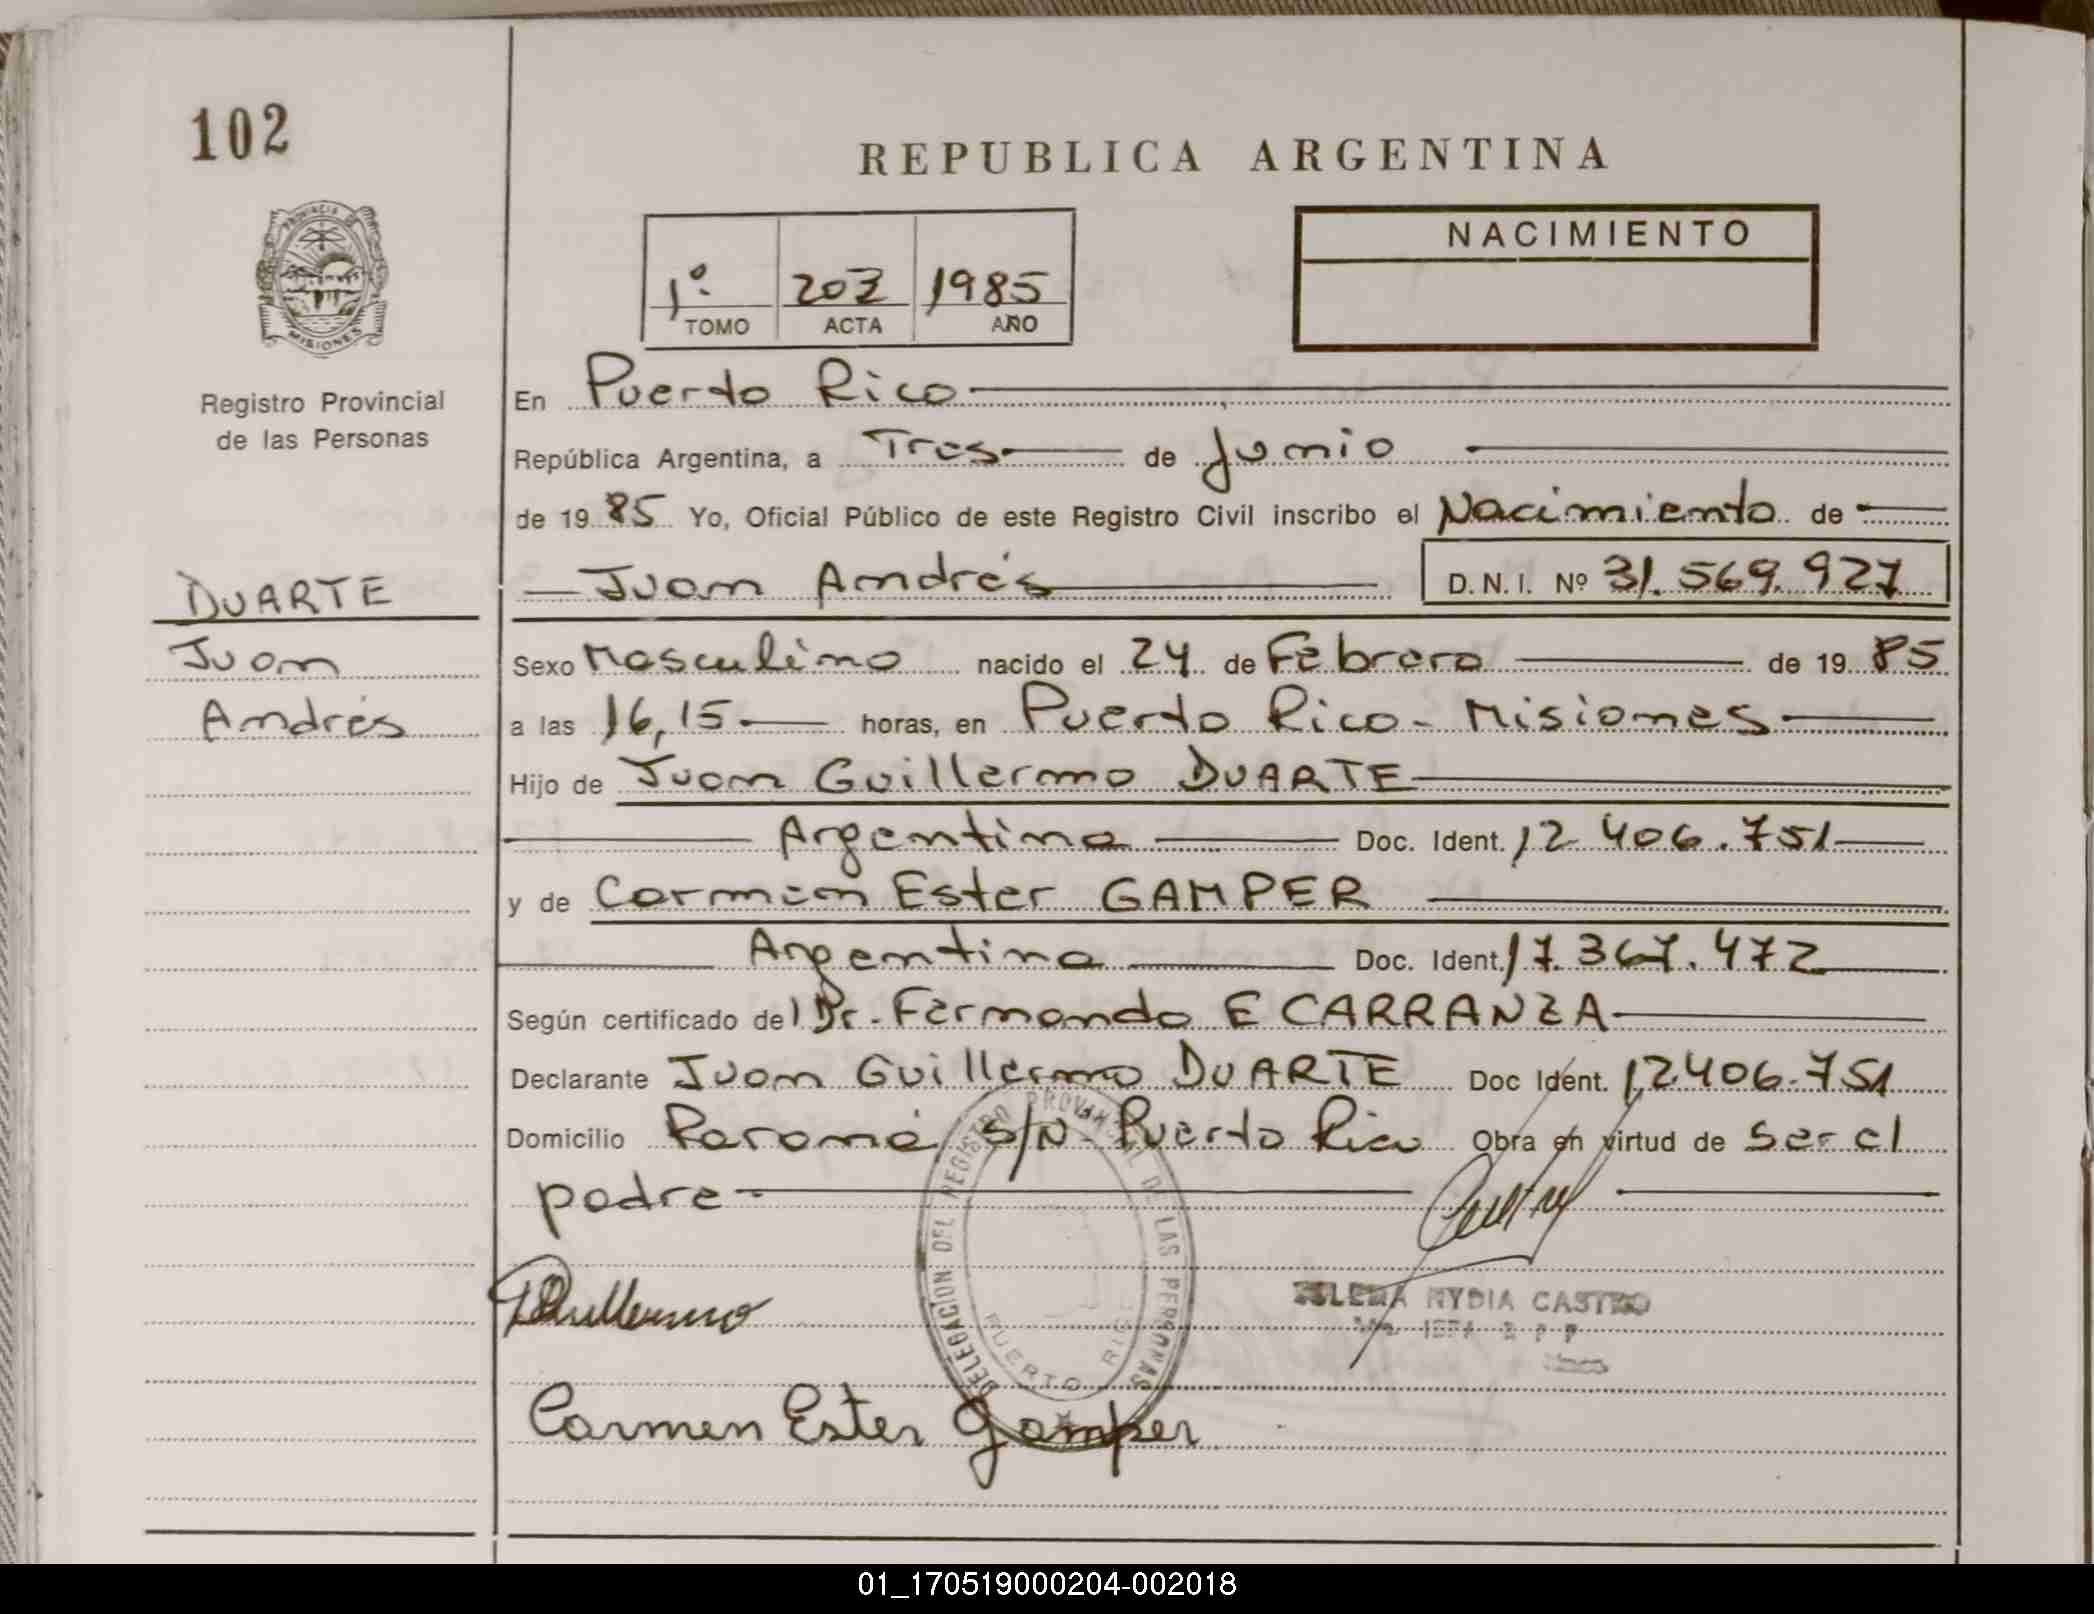 102
REPUBLICA ARGENTINA
PROVINCIA DE
MISIONES
Registro Provincial
de las Personas
1º 202 1985
TOMO ACTA AÑO
NACIMIENTO
En Puerto Rico
República Argentina, a Tres de Junio
de 19 85 Yo, Oficial Público de este Registro Civil inscribo el Nacimiento de
Juan Andrés D.N.I. Nº 31.569.927
DUARTE
Juan
Andrés
Sexo Masculino nacido el 24 de Febrero de 19 85
a las 16,15 horas, en Puerto Rico - Misiones
Hijo de Juan Guillermo DUARTE
Argentina Doc. Ident. 12 406.751
y de Carmen Ester GAMPER
Argentina Doc. Ident. 17.367.472
Según certificado del Dr. Fernando E CARRANZA
Declarante Juan Guillermo DUARTE Doc Ident. 12406.751
Domicilio Paraná S/N - Puerto Rico Obra en virtud de ser el
padre
DELEGACION DEL REGISTRO PROVINCIAL DE LAS PERSONAS
PUERTO RICO
NYDIA CASTRO
Carmen Ester Gamper
01_170519000204-002018